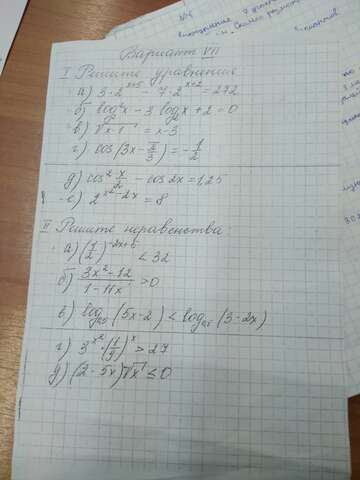 Вариант VII
I Решите уравнение
а) 3·2^(x+5) - 7·2^(x+2) = 272
б) log₂²x - 3 log₂x + 2 = 0
в) √(x-1) = x-3
г) cos(3x - π/3) = -1/2
д) cos² x/2 - cos2x = 1,25
е) 2^(x²-2x) = 8
II Решите неравенства:
а) (1/2)^(-2x+6) < 32
б) (3x²-12)/(1-11x) > 0
в) log₀,₅(5x-2) < log₀,₅(3-2x)
г) 3^(x²)·(1/9)^x > 27
д) (2-5x)√x ≤ 0